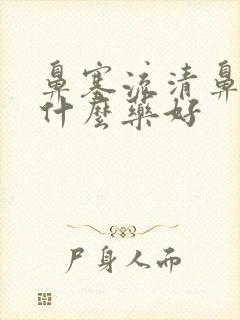 鼻塞流清鼻
什麼藥好
尸身人而